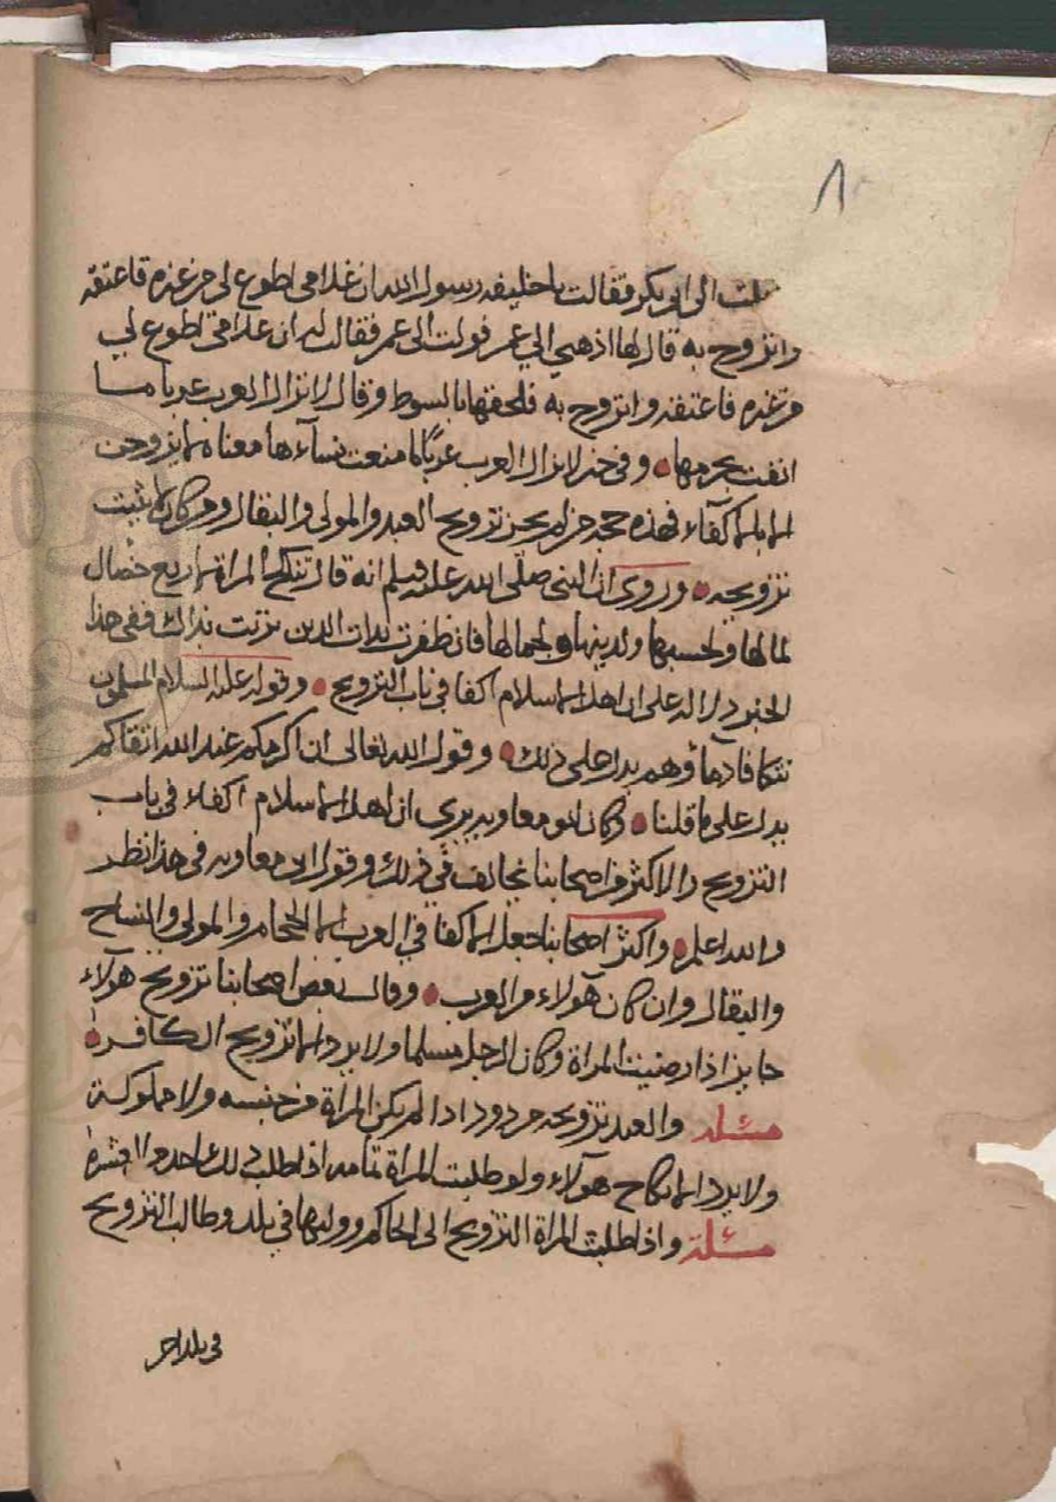 ٨
الى ابو بكر فقالت يا خليفه رسول الله ان غلامى اطوع لى من غيره فاعتقه
واتزوج به قال لها اذهبي الي عمر فولت الى عمر فقالت له ان غلامى اطوع لي
من غيره فاعتقه واتزوج به فلحقها بالسوط وقال لا تزال العرب عربا ما
انفت بحرمها وفى خبر لا تزال العرب عربًا ما منعت نسآءها معناه لا يزوجن
الا بالاكفاء فهذه حجه من لم يجز تزويج العبد والمولى والبقال ومن كان لا يثبت
تزويجه وروى ان النبى صلى الله عليه وسلم انه قال تنكح المراة لاربع خصال
لمالها ولحسبها ولدينها ولجمالها فان ظفرت بذات الدين تربت يداك ففى هذا
الخبر دلاله على ان اهل الاسلام اكفا في باب التزويج وقوله عليه السلام المسلمون
تتكافا دماؤهم يدل على ذلك وقول الله تعالى ان اكرمكم عند الله اتقاكم
يدل على ما قلنا وكان ابو معاويه يري ان اهل الاسلام اكفاء فى باب
التزويج والاكثر من اصحابنا يخالف في ذلك وقول ابى معاويه فى هذا نظر
والله اعلم واكثر اصحابنا جعل الاكفا في العرب الا الحجام والمولى والنساج
والبقال وان كان هولاء من العرب وقال بعض اصحابنا تزويج هولآء
جايز اذا رضيت المراة وكان الرجل مسلما ولا يرد الا تزويج الكافر
مسئله والعبد تزويجه مردود اذا لم يكن المراة من جنسه ولا مملوكة
ولا يرد الا نكاح هولآء ولو طلبت المراة تمامه اذا طلب ذلك احد
مسئلة واذا طلبت المراة التزويج الى الحاكم ووليها في بلد وطالب التزويج
فى بلد اخر